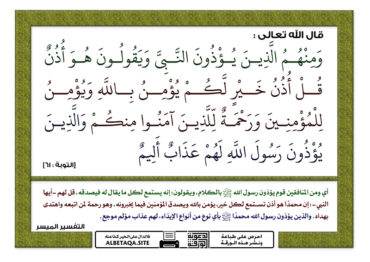 قال الله تعالى :
وَمِنْهُمُ الَّذِينَ يُؤْذُونَ النَّبِيَّ وَيَقُولُونَ هُوَ أُذُنٌ
قُلْ أُذُنُ خَيْرٍ لَّكُمْ يُؤْمِنُ بِاللَّهِ وَيُؤْمِنُ
لِلْمُؤْمِنِينَ وَرَحْمَةٌ لِّلَّذِينَ آمَنُوا مِنكُمْ وَالَّذِينَ
يُؤْذُونَ رَسُولَ اللَّهِ لَهُمْ عَذَابٌ أَلِيمٌ
[التوبة : ٦١]
أي ومن المنافقين قوم يؤذون رسول الله ﷺ بالكلام، ويقولون: إنه يستمع لكل ما يقال له فيصدقه، قل لهم -أيها
النبي-: إن محمدا هو أذن تستمع لكل خير، يؤمن بالله ويصدق المؤمنين فيما يخبرونه، وهو رحمة لمن اتبعه واهتدى
بهداه. والذين يؤذون رسول الله محمدا ﷺ بأي نوع من أنواع الإيذاء، لهم عذاب مؤلم موجع.
التفسير الميسر
احرص على طباعة
ونشر هذه الورقة
فالدال على الخير كفاعله
ALBETAQA.SITE